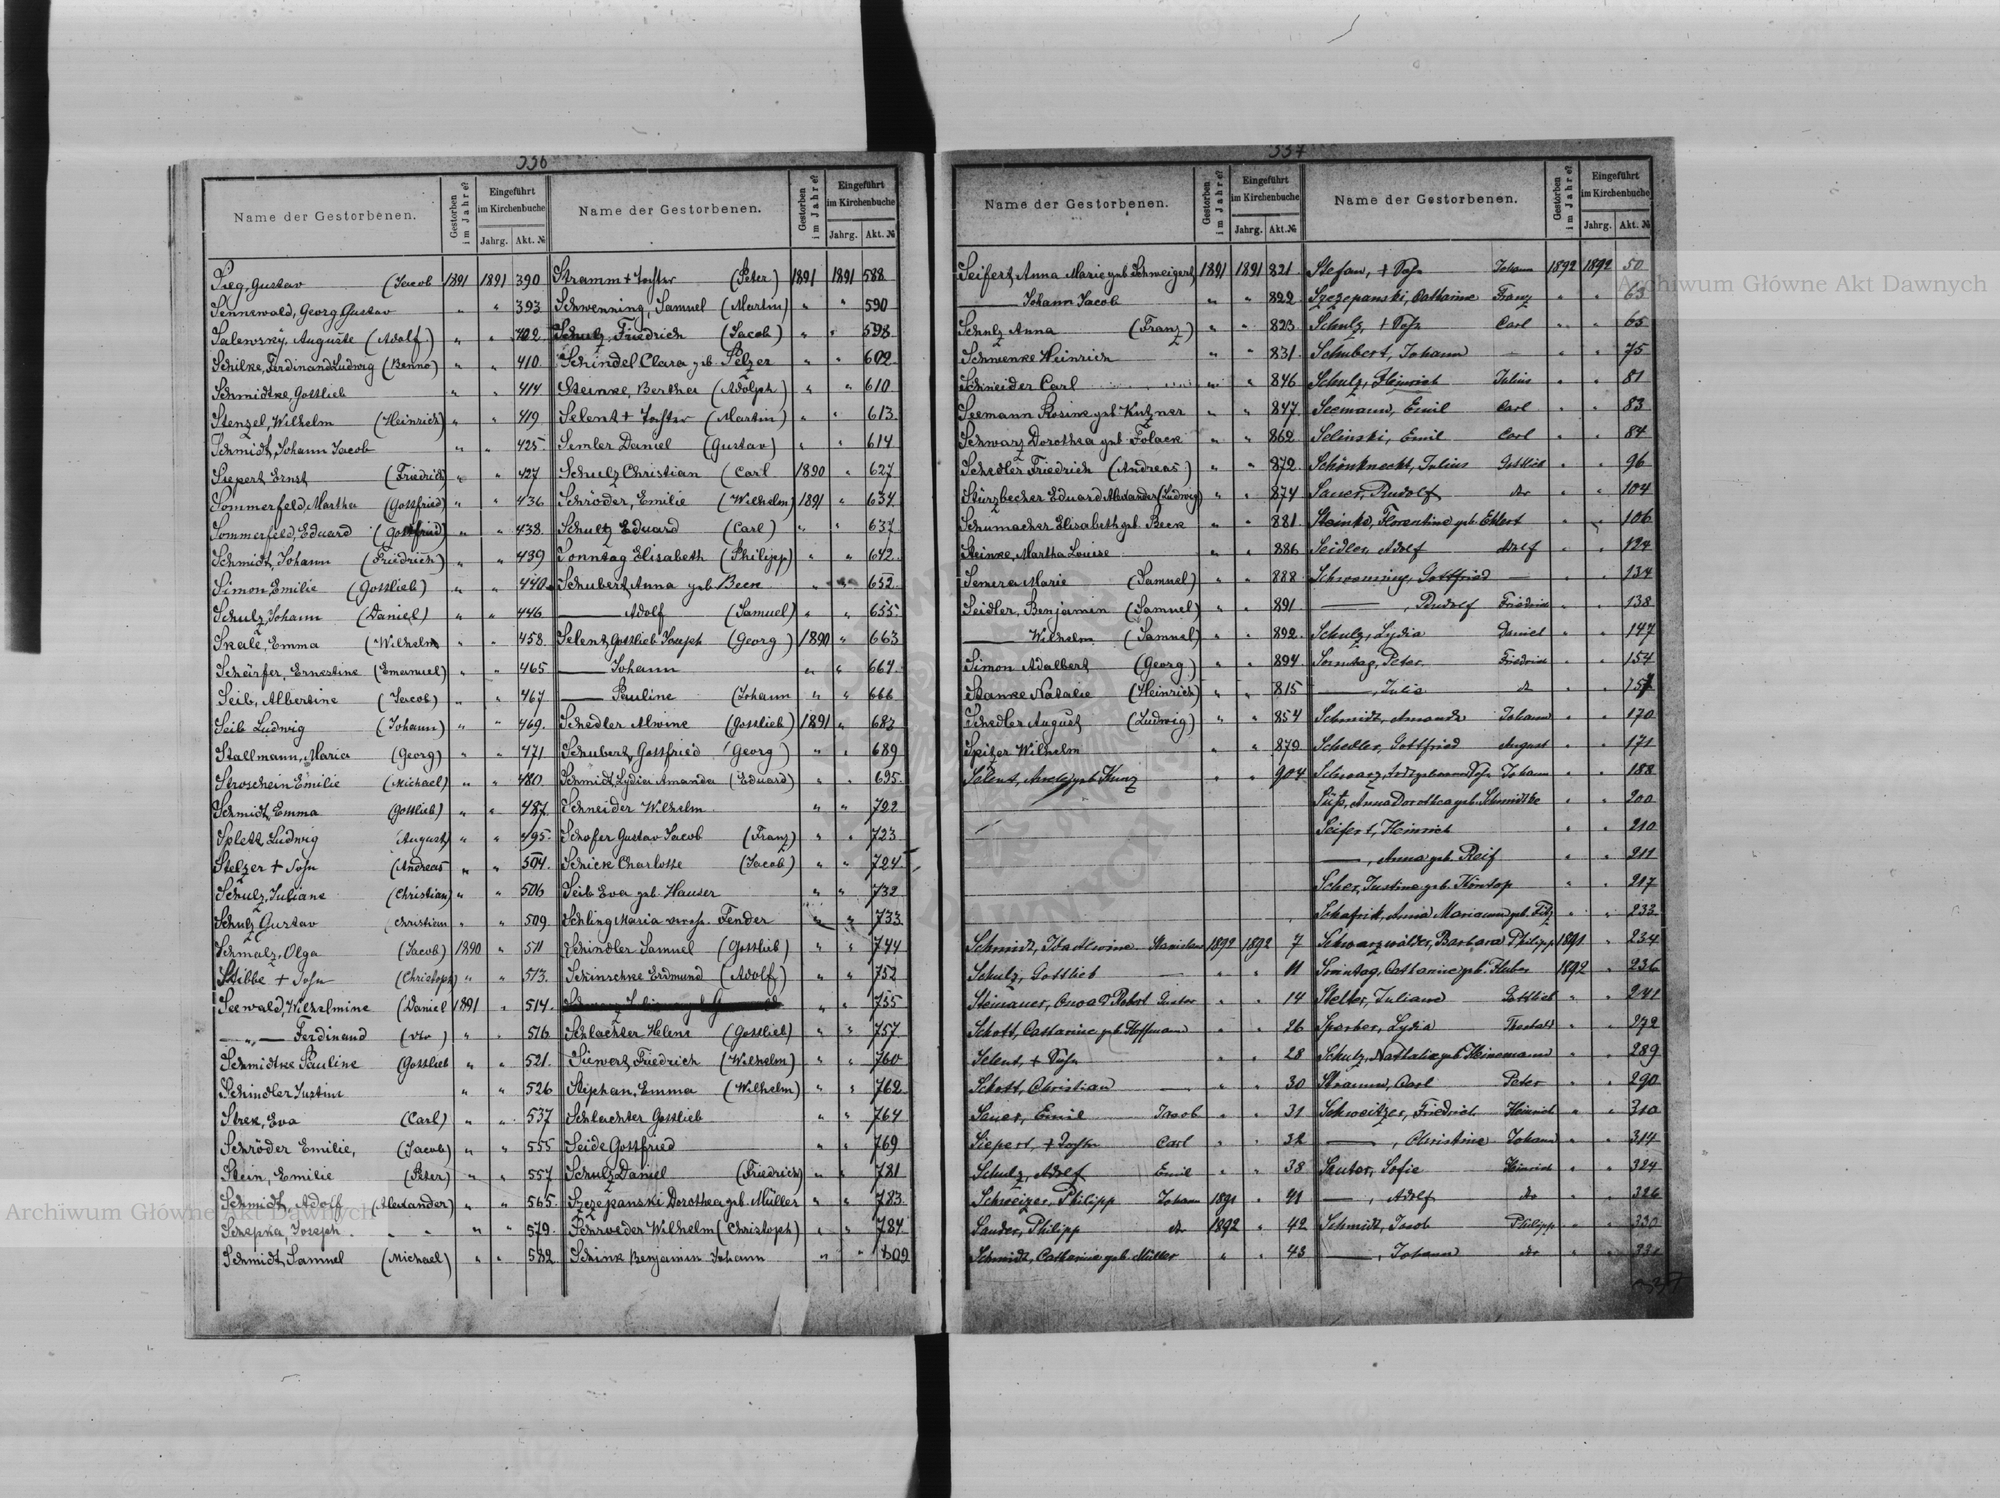 336
Name der Gestorbenen. Gestorben im Jahre? Eingeführt im Kirchenbuche Jahrg. Akt. №
Sieg, Gustav (Jacob 1891 1891 390
Sennewald, Georg Gustav " " 393
Salewsky, Auguste (Adolf) " " 402
Schilke, Ferdinand Ludwig (Benno) " " 410
Schmidtke, Gottlieb " " 414
Stenzel, Wilhelm (Heinrich) " " 419
Schmidt, Johann Jacob " " 425
Siepert Ernst (Friedrich) " " 427
Sommerfeld, Martha (Gottfried) " " 436
Sommerfeld, Eduard (Gottfried) " " 438
Schmidt, Johann (Friedrich) " " 439
Simon, Emilie (Gottlieb) " " 440
Schulz, Johann (Daniel) " " 446
Skale, Emma (Wilhelm " " 458
Schärfer, Ernestine (Emanuel) " " 465
Seib, Albertine (Jacob) " " 467
Seib Ludwig (Johann) " " 469
Stallmann, Maria (Georg) " " 471
Stroschein Emilie (Michael) " " 480
Schmidt, Emma (Gottlieb) " " 487
Splett, Ludwig (August) " " 495
Stelzer + Sohn (Andreas " " 504
Schulz, Juliane (Christian) " " 506
Schulz, Gustav (Christian " " 509
Schmalz, Olga (Jacob) 1890 " 511
Stibbe + Sohn (Christoph) " " 513
Seewald, Wilhelmine (Daniel 1891 " 514
— " — Ferdinand (dto) " " 516
Schmidtke Pauline (Gottlieb " " 521
Schindler Justine " " 526
Strek, Eva (Carl) " " 537
Schröder Emilie, (Jacob) " " 555
Stein, Emilie (Peter) " " 557
Schmidt, Adolf (Alexander) " " 565
Schepka, Joseph " " 579
Schmidt, Samuel (Michael) " " 582
Name der Gestorbenen. Gestorben im Jahre? Eingeführt im Kirchenbuche Jahrg. Akt. №
Stramm + Tochter (Peter) 1891 1891 588
Schwenning, Samuel (Martin) " " 590
Schulz, Friedrich (Jacob) " " 598
Schindel Clara geb. Pelzer " " 602
Steinke, Bertha (Adolph) " " 610
Selent + Tochter (Martin) " " 613
Semler Daniel (Gustav) " " 614
Schulz Christian (Carl 1890 " 627
Schröder, Emilie (Wilhelm) 1891 " 634
Schultz Eduard (Carl) " " 637
Sonntag Elisabeth (Philipp) " " 642
Schubert Anna geb. Beck " " 652
— Adolf (Samuel) " " 655
Selent, Gottlieb Joseph (Georg) 1890 " 663
— Johann " " 664
— Pauline (Johann " " 666
Schedler Alwine (Gottlieb) 1891 " 683
Schubert, Gottfried (Georg) " " 689
Schmidt, Lydia Amanda (Eduard) " " 695
Schneider Wilhelm " " 722
Schofer Gustav Jacob (Franz) " " 723
Schick Charlotte (Jacob) " " 724
Seib Eva geb. Hauser " " 732
Schling Maria verw. Fender " " 733
Schindler Samuel (Gottlieb) " " 744
Schinschke Erdmund (Adolf) " " 752
" " 755
Schlachter Helene (Gottlieb) " " 757
Siewert, Friedrich (Wilhelm) " " 760
Stephan, Emma (Wilhelm) " " 762
Schlachter Gottlieb " " 764
Seide Gottfried " " 769
Schulz Daniel (Friedrich) " " 781
Szczepanski Dorothea geb. Müller " " 783
Schroeder Wilhelm (Christoph) " " 784
Schink Benjamin Johann " " 809
337
Name der Gestorbenen. Gestorben im Jahre? Eingeführt im Kirchenbuche Jahrg. Akt. №
Seifert, Anna Marie geb. Schweigert 1891 1891 821
— Johann Jacob " " 822
Schulz Anna (Franz) " " 823
Schwenke Heinrich " " 831
Schneider Carl " " 846
Seemann Rosine geb. Kutzner " " 847
Schwarz Dorothea geb. Polack " " 862
Schedler Friedrich (Andreas) " " 872
Stürzbecher Eduard Alexander (Ludwig) " " 874
Schumacher Elisabeth geb. Beck " " 881
Steinke, Martha Louise " " 886
Semera Marie (Samuel) " " 888
Seidler, Benjamin (Samuel) " " 891
— Wilhelm (Samuel) " " 892
Simon Adalbert (Georg) " " 894
Stanke Natalie (Heinrich) " " 815
Schedler August (Ludwig) " " 854
Spitzer Wilhelm " " 879
Selent, geb. Kunz " " 904
Schmidt, Stanislaus 1892 1892 7
Schulz, Gottlieb — " " 11
Steinauer, Robert Gustav " " 14
Schott, Catharine geb. Hoffmann " " 26
Selent, + Sohn " " 28
Schott, Christian — " " 30
Sauer, Emil Jacob " " 31
Siepert, + Tochter Carl " " 32
Schulz, Adolf Emil " " 38
Schweizer, Philipp Johann 1891 " 41
Sauder, Philipp do 1892 " 42
Schmidt, Catharine geb. Müller " " 43
Name der Gestorbenen. Gestorben im Jahre? Eingeführt im Kirchenbuche Jahrg. Akt. №
Stefan, + Sohn Johann 1892 1892 50
Szczepanski, Catharine Franz " " 63
Schulz, + Sohn Carl " " 65
Schubert, Johann — " " 75
Schulz, Heinrich Julius " " 81
Seemann, Emil Carl " " 83
Selinski, Emil Carl " " 84
Schönknecht, Julius Gottlieb " " 96
Sauer, Rudolf dto " " 104
Steinke, Florentine geb. Ehlert " " 106
Seidler, Adolf Adolf " " 124
Schwenning, Gottfried — " " 134
—, Rudolf Friedrich " " 138
Schulz, Lydia Daniel " " 147
Sonntag, Peter Friedrich " " 154
—, Julie do " " 157
Schmidt, Amanda Johann " " 170
Schedler, Gottfried August " " 171
Schwarz, todtgeborener Sohn Johann " " 188
Süß, Anna Dorothea geb. Schmidtke " " 200
Seifert, Heinrich " " 210
—, Anna geb. Reif " " 211
Scher, Justine geb. " " 217
Schafrik, Anna Marianna geb. Fitz " " 233
Schwarzwälder, Barbara Philipp 1891 " 234
Sonntag, Catharine geb. Huber 1892 " 236
Stelter, Juliane Gottlieb " " 241
Sperber, Lydia Theobald " " 272
Schulz, Nathalie geb. Heinemann " " 289
Stramm, Carl Peter " " 290
Schweitzer, Friedrich Heinrich " " 310
—, Christine Johann " " 314
Sauter, Sofie Heinrich " " 324
—, Adolf do " " 326
Schmidt, Jacob Philipp " " 330
—, Johann do " " 331
Archiwum Główne Akt Dawnych
Archiwum Główne Akt Dawnych